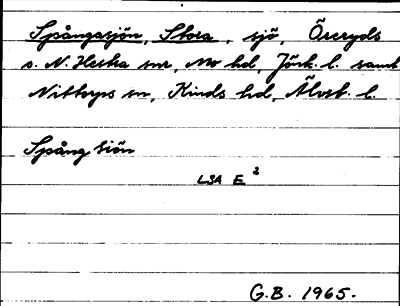 Spångasjön, Stora, sjö, Öreryds
s. N. Hestra sn, Mo hd, Jönk. l. samt
Nittorps sn, Kinds hd, Älvsb. l.
Spång siön
LSA E 2
G.B. 1965.